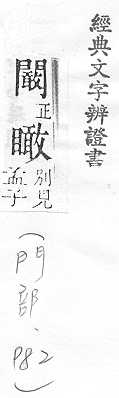 經典文字辨證書
闞正瞰別見孟子
（門部、P82）